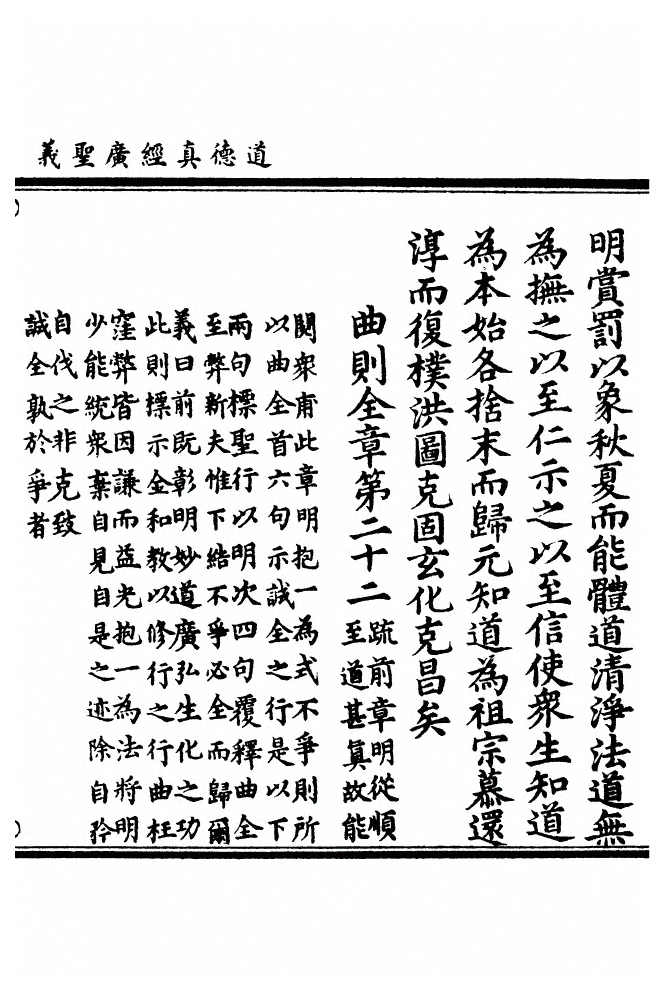 道德真經廣聖義
明賞罰以象秋夏而能體道清淨法道無
為撫之以至仁示之以至信使眾生知道
為本始各捨末而歸元知道為祖宗慕還
淳而復樸洪圖克固玄化克昌矣
曲則全章第二十二
疏前章明從順
至道甚真故能
閱衆甫此章明抱一為式不爭則所
以曲全首六句示誠全之行是以下
兩句標聖行以明次四句覆釋曲全
至弊新夫惟下結不爭必全而歸爾
義曰前既彰明妙道廣弘生化之功
此則標示全和教以修行之行曲枉
窪弊皆因謙而益光抱一為法將明
少能統衆棄自見自是之迹除自矜
自伐之非克致
誠全孰於爭者